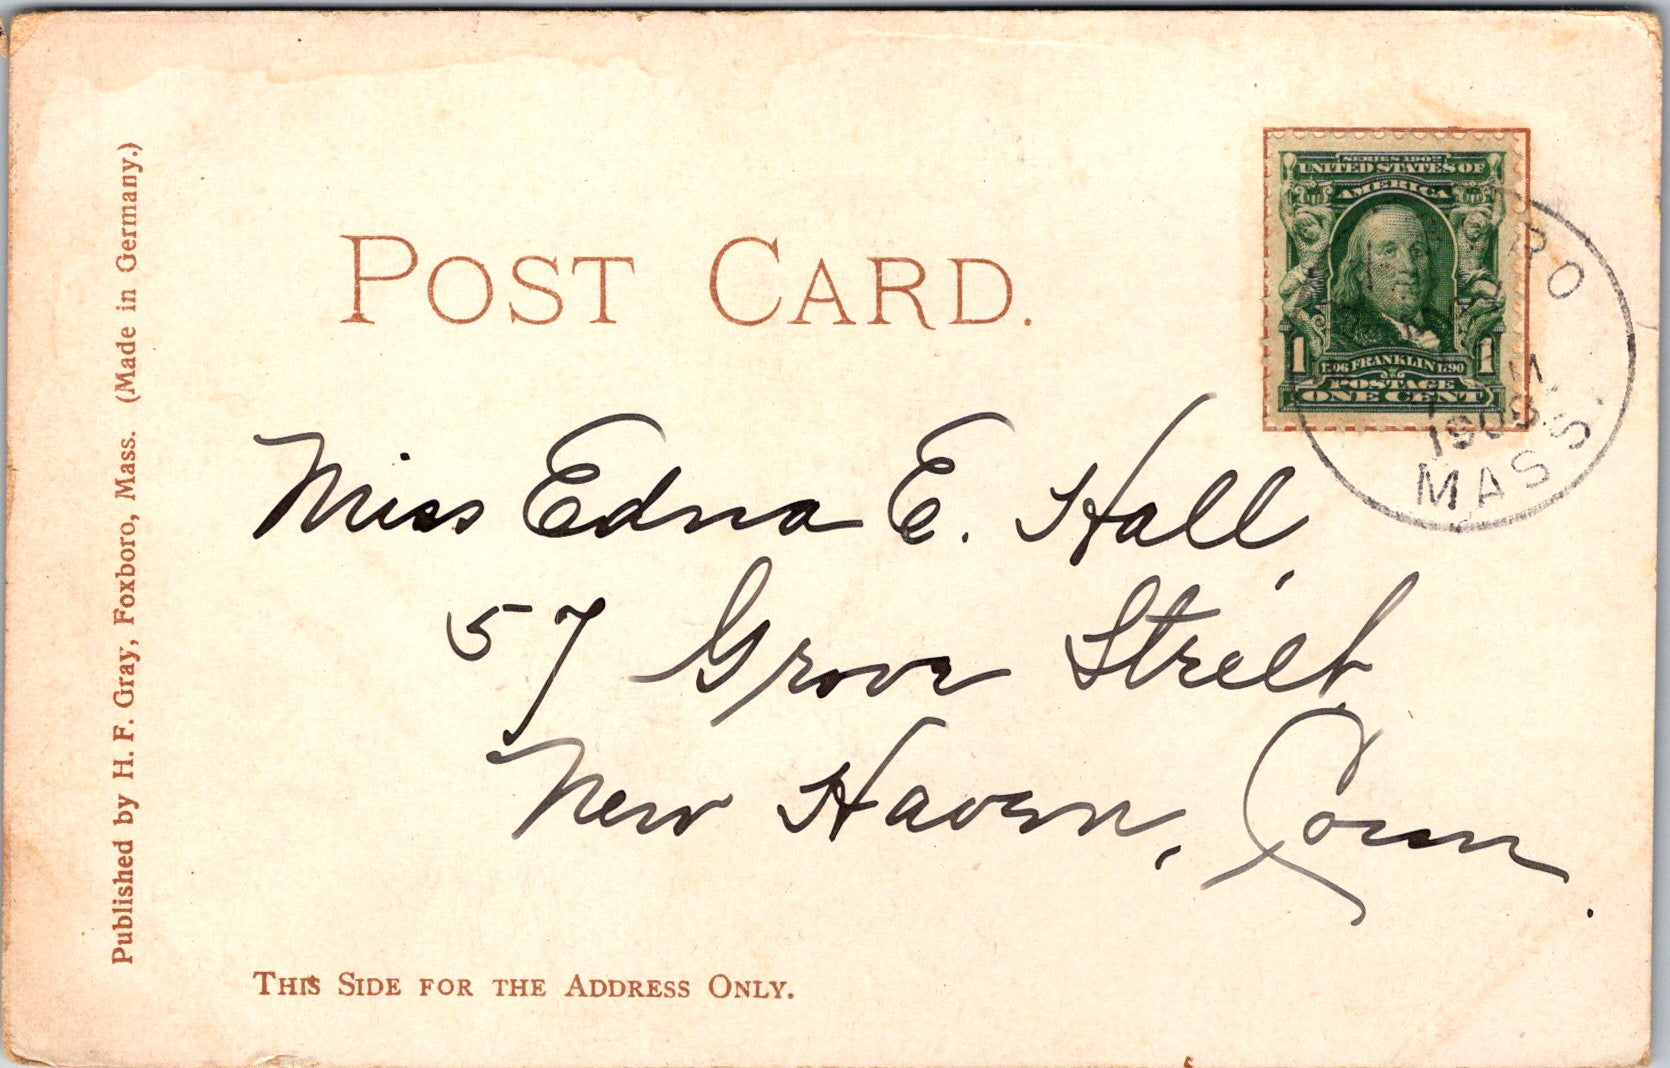 Published by H. F. Gray, Foxboro, Mass. (Made in Germany.)
POST CARD.
SERIES 1902
UNITED STATES OF
AMERICA
1 FRANKLIN 1
POSTAGE
ONE CENT
MASS.
Miss Edna E. Hall,
57 Grove Street
New Haven, Conn.
THIS SIDE FOR THE ADDRESS ONLY.